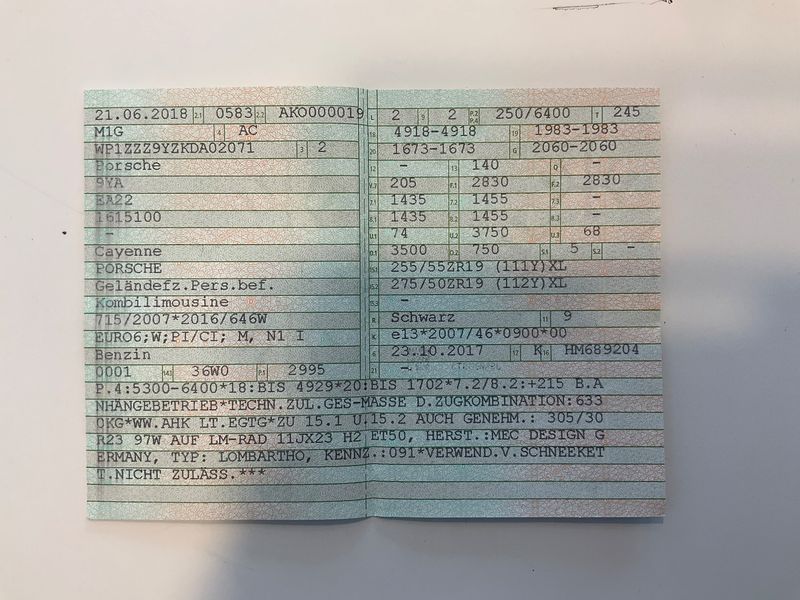 21.06.2018 2.1 0583 2.2 AKO000019
M1G 4 AC
WP1ZZZ9YZKDA02071 3 2
Porsche
9YA
EA22
1615100
-
Cayenne
PORSCHE
Geländefz.Pers.bef.
Kombilimousine
715/2007*2016/646W
EURO6;W;PI/CI; M, N1 I
Benzin
0001 14.1 36W0 P.1 2995
L 2 9 2 P.2 P.4 250/6400 T 245
18 4918-4918 19 1983-1983
20 1673-1673 G 2060-2060
12 - 13 140 Q -
V.7 205 F.1 2830 F.2 2830
7.1 1435 7.2 1455 7.3 -
8.1 1435 8.2 1455 8.3 -
U.1 74 U.2 3750 U.3 68
O.1 3500 O.2 750 S.1 5 S.2 -
15.1 255/55ZR19 (111Y)XL
15.2 275/50ZR19 (112Y)XL
15.3 -
R Schwarz 11 9
K e13*2007/46*0900*00
6 23.10.2017 17 K 16 HM689204
21 -
P.4:5300-6400*18:BIS 4929*20:BIS 1702*7.2/8.2:+215 B.A
NHÄNGEBETRIEB*TECHN.ZUL.GES-MASSE D.ZUGKOMBINATION:633
0KG*WW.AHK LT.EGTG*ZU 15.1 U.15.2 AUCH GENEHM.: 305/30
R23 97W AUF LM-RAD 11JX23 H2 ET50, HERST.:MEC DESIGN G
ERMANY, TYP: LOMBARTHO, KENNZ.:091*VERWEND.V.SCHNEEKET
T.NICHT ZULÄSS.***